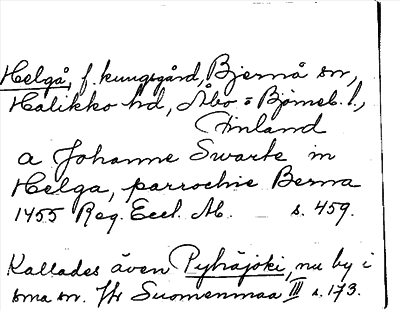 Helgå, f. kungsgård, Bjernå sn,
Halikko hd, Åbo o Björneb. l.,
Finland
a Johanne Swarte in
Helga, parrochie Berna
1455 Reg. Eccl. Ab. s. 459.
Kallades även Pyhäjoki, nu by i
sma sn. Jfr Suomenmaa III s. 173.